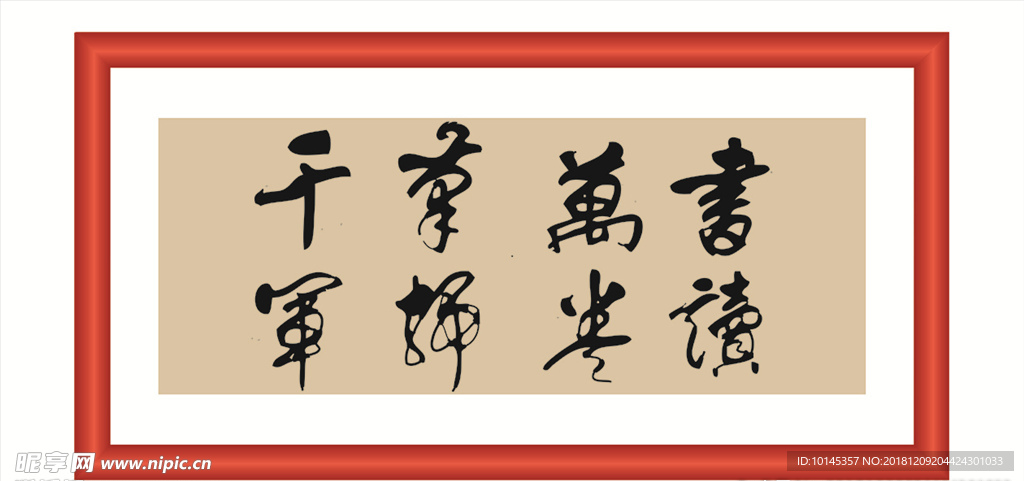 書讀
萬卷
筆掃
千軍
昵享网 www.nipic.cn
ID:10145357 NO:20181209204424301033